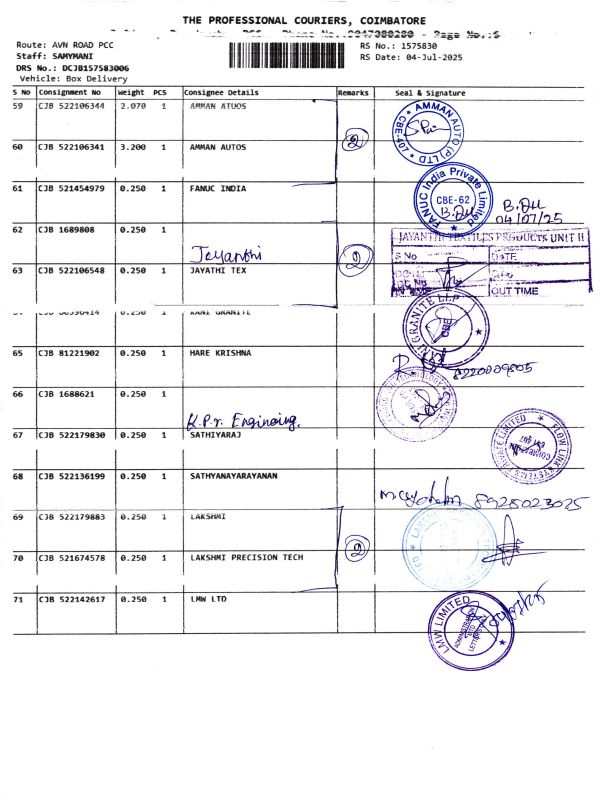 THE PROFESSIONAL COURIERS, COIMBATORE
Route: AVN ROAD PCC
Staff: SAMYMANI
DRS No.: DCJB157583006
Vehicle: Box Delivery
RS No.: 1575830
RS Date: 04-Jul-2025
S No Consignment No Weight PCS Consignee Details Remarks Seal & Signature
59 CJB 522106344 2.070 1 AMMAN ATUOS
AMMAN AUTO (P) LTD CBE-407
2
60 CJB 522106341 3.200 1 AMMAN AUTOS
61 CJB 521454979 0.250 1 FANUC INDIA
FANUC India Private Limited
CBE-62
B.
04/07/25
62 CJB 1689808 0.250 1
Jayanthi
2
JAYANTHI TEXTILES PRODUCTS UNIT II
S No DATE
OUT TIME
63 CJB 522106548 0.250 1 JAYATHI TEX
0.250 1 KANI GRANITE
KANI GRANITE LLP
CBE
65 CJB 81221902 0.250 1 HARE KRISHNA
66 CJB 1688621 0.250 1
K.P.r. Enginering.
67 CJB 522179830 0.250 1 SATHIYARAJ
FLOW LINK SYSTEMS PRIVATE LIMITED
COIMBATORE
641 407
68 CJB 522136199 0.250 1 SATHYANAYARAYANAN
8925023025
69 CJB 522179883 0.250 1 LAKSHMI
2
70 CJB 521674578 0.250 1 LAKSHMI PRECISION TECH
71 CJB 522142617 0.250 1 LMW LTD
LMW LIMITED
ADMINISTRATION